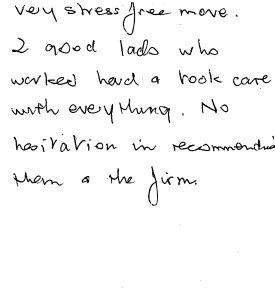 very stress free move.
2 good lads who
worked hard & took care
with everything. No
hesitation in recommending
them & the firm.